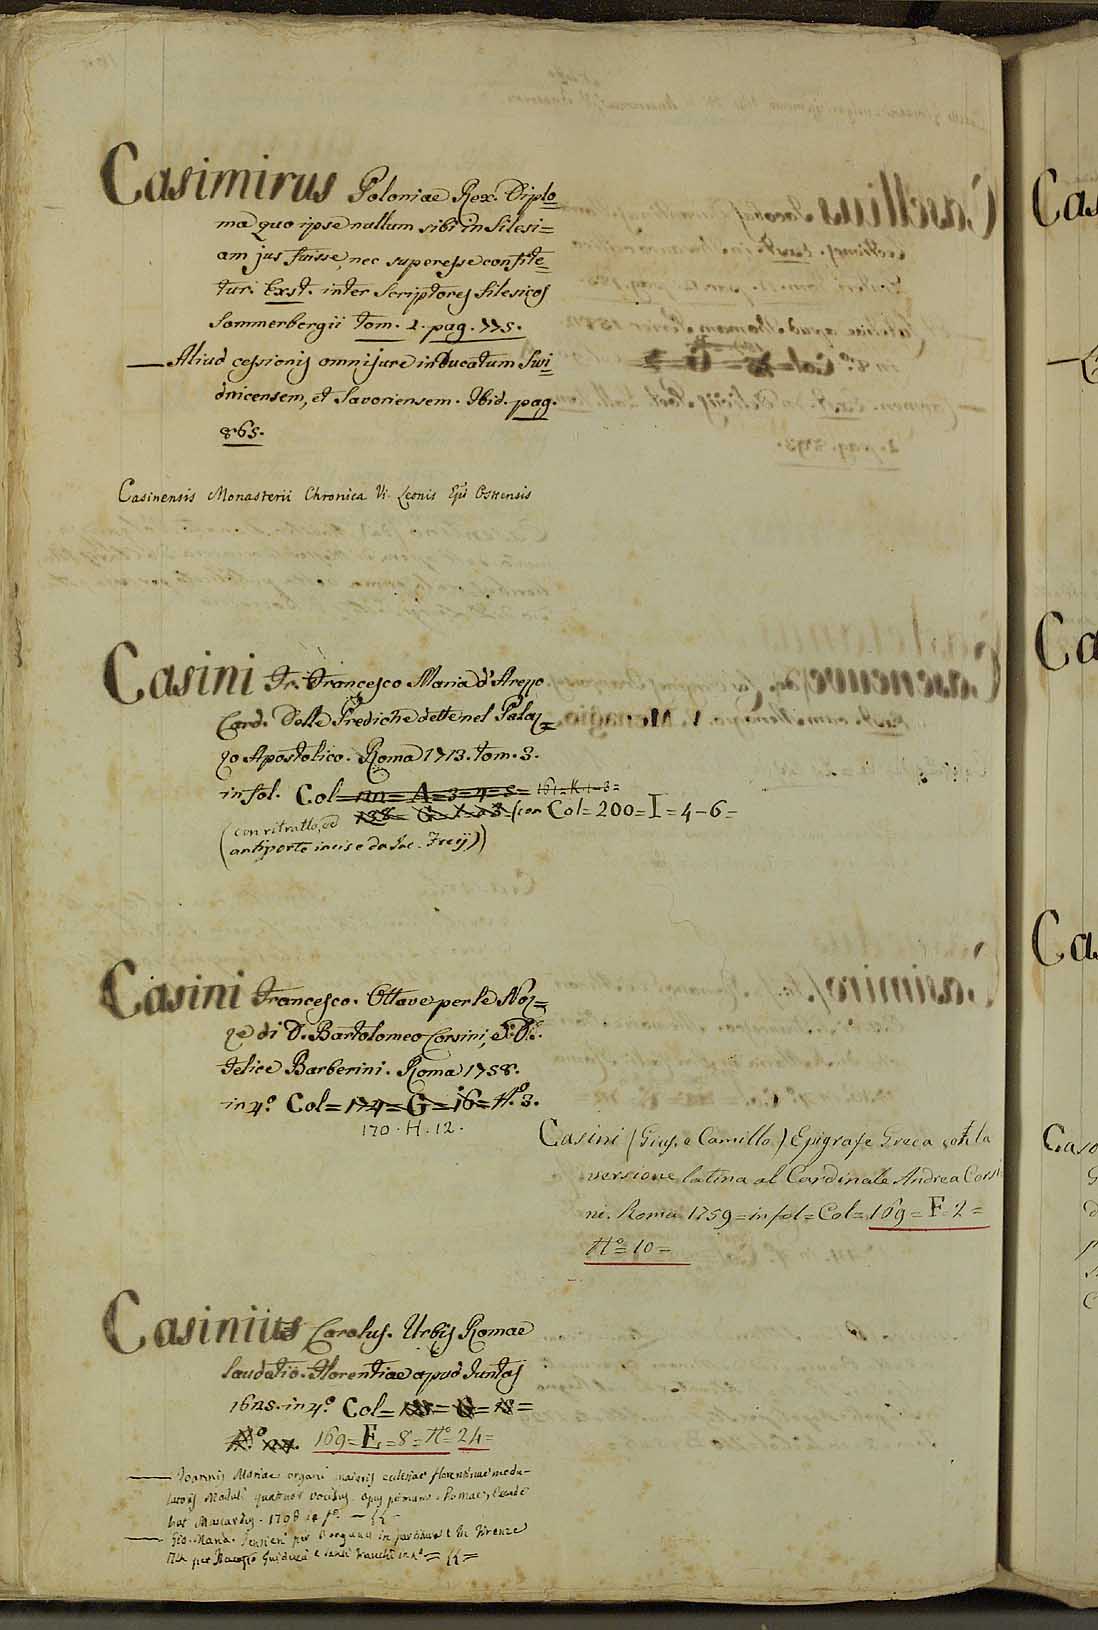 Casimirus Poloniae Rex. Diplo
ma quo ipse nullum sibi in Silesi=
am jus fuisse, nec superesse confite=
tur. Exst. inter Scriptores Silesicos
Sommerbergii tom. 1. pag. 775.
— Aliud cessionis omnis jure in Ducatum Swi
dnicensem, et Javoriensem. Ibid. pag.
865.
Casinensis Monasterii Chronica Vi. Leonis Epi Ostiensis
Casini Fr. Francesco Maria d'Arezzo
Card. Delle Prediche dette nel Palaz=
zo Apostolico. Roma 1713. tom. 3.
in fol. Col= = A=3=4=5= K.1=3=
(con ritratto, ed (con Col=200=I=4-6=
antiporte incise da Jac. Freij))
Casini Francesco. Ottave per le Noz=
ze di D. Bartolomeo Corsini, e D.
Felice Barberini. Roma 1758.
in 4.o Col=174=G=16=N.o 3.
170. H. 12.
Casini (Gius. e Camillo) Epigrafe Greca colla
versione latina al Cardinale Andrea Corsi
ni. Roma 1759=in fol=Col=169=F=2=
No=10=
Casinius Carolus. Urbis Romae
laudatio. Florentiae apud Juntas
in 4.o Col= = G=18=
N.o 169=E=8=No=24=
— Joannis Mariae organi maioris ecclesiae florentinae modu-
latoris Moduli quatuor vocibus. opus primum. Romae, Excude
bat Mascardus. 1708 in fo.
— Gio. Maria. Pensieri per l'organo in partitura. In Firenze
per Jacopo Guiducci e Santi Franchi in